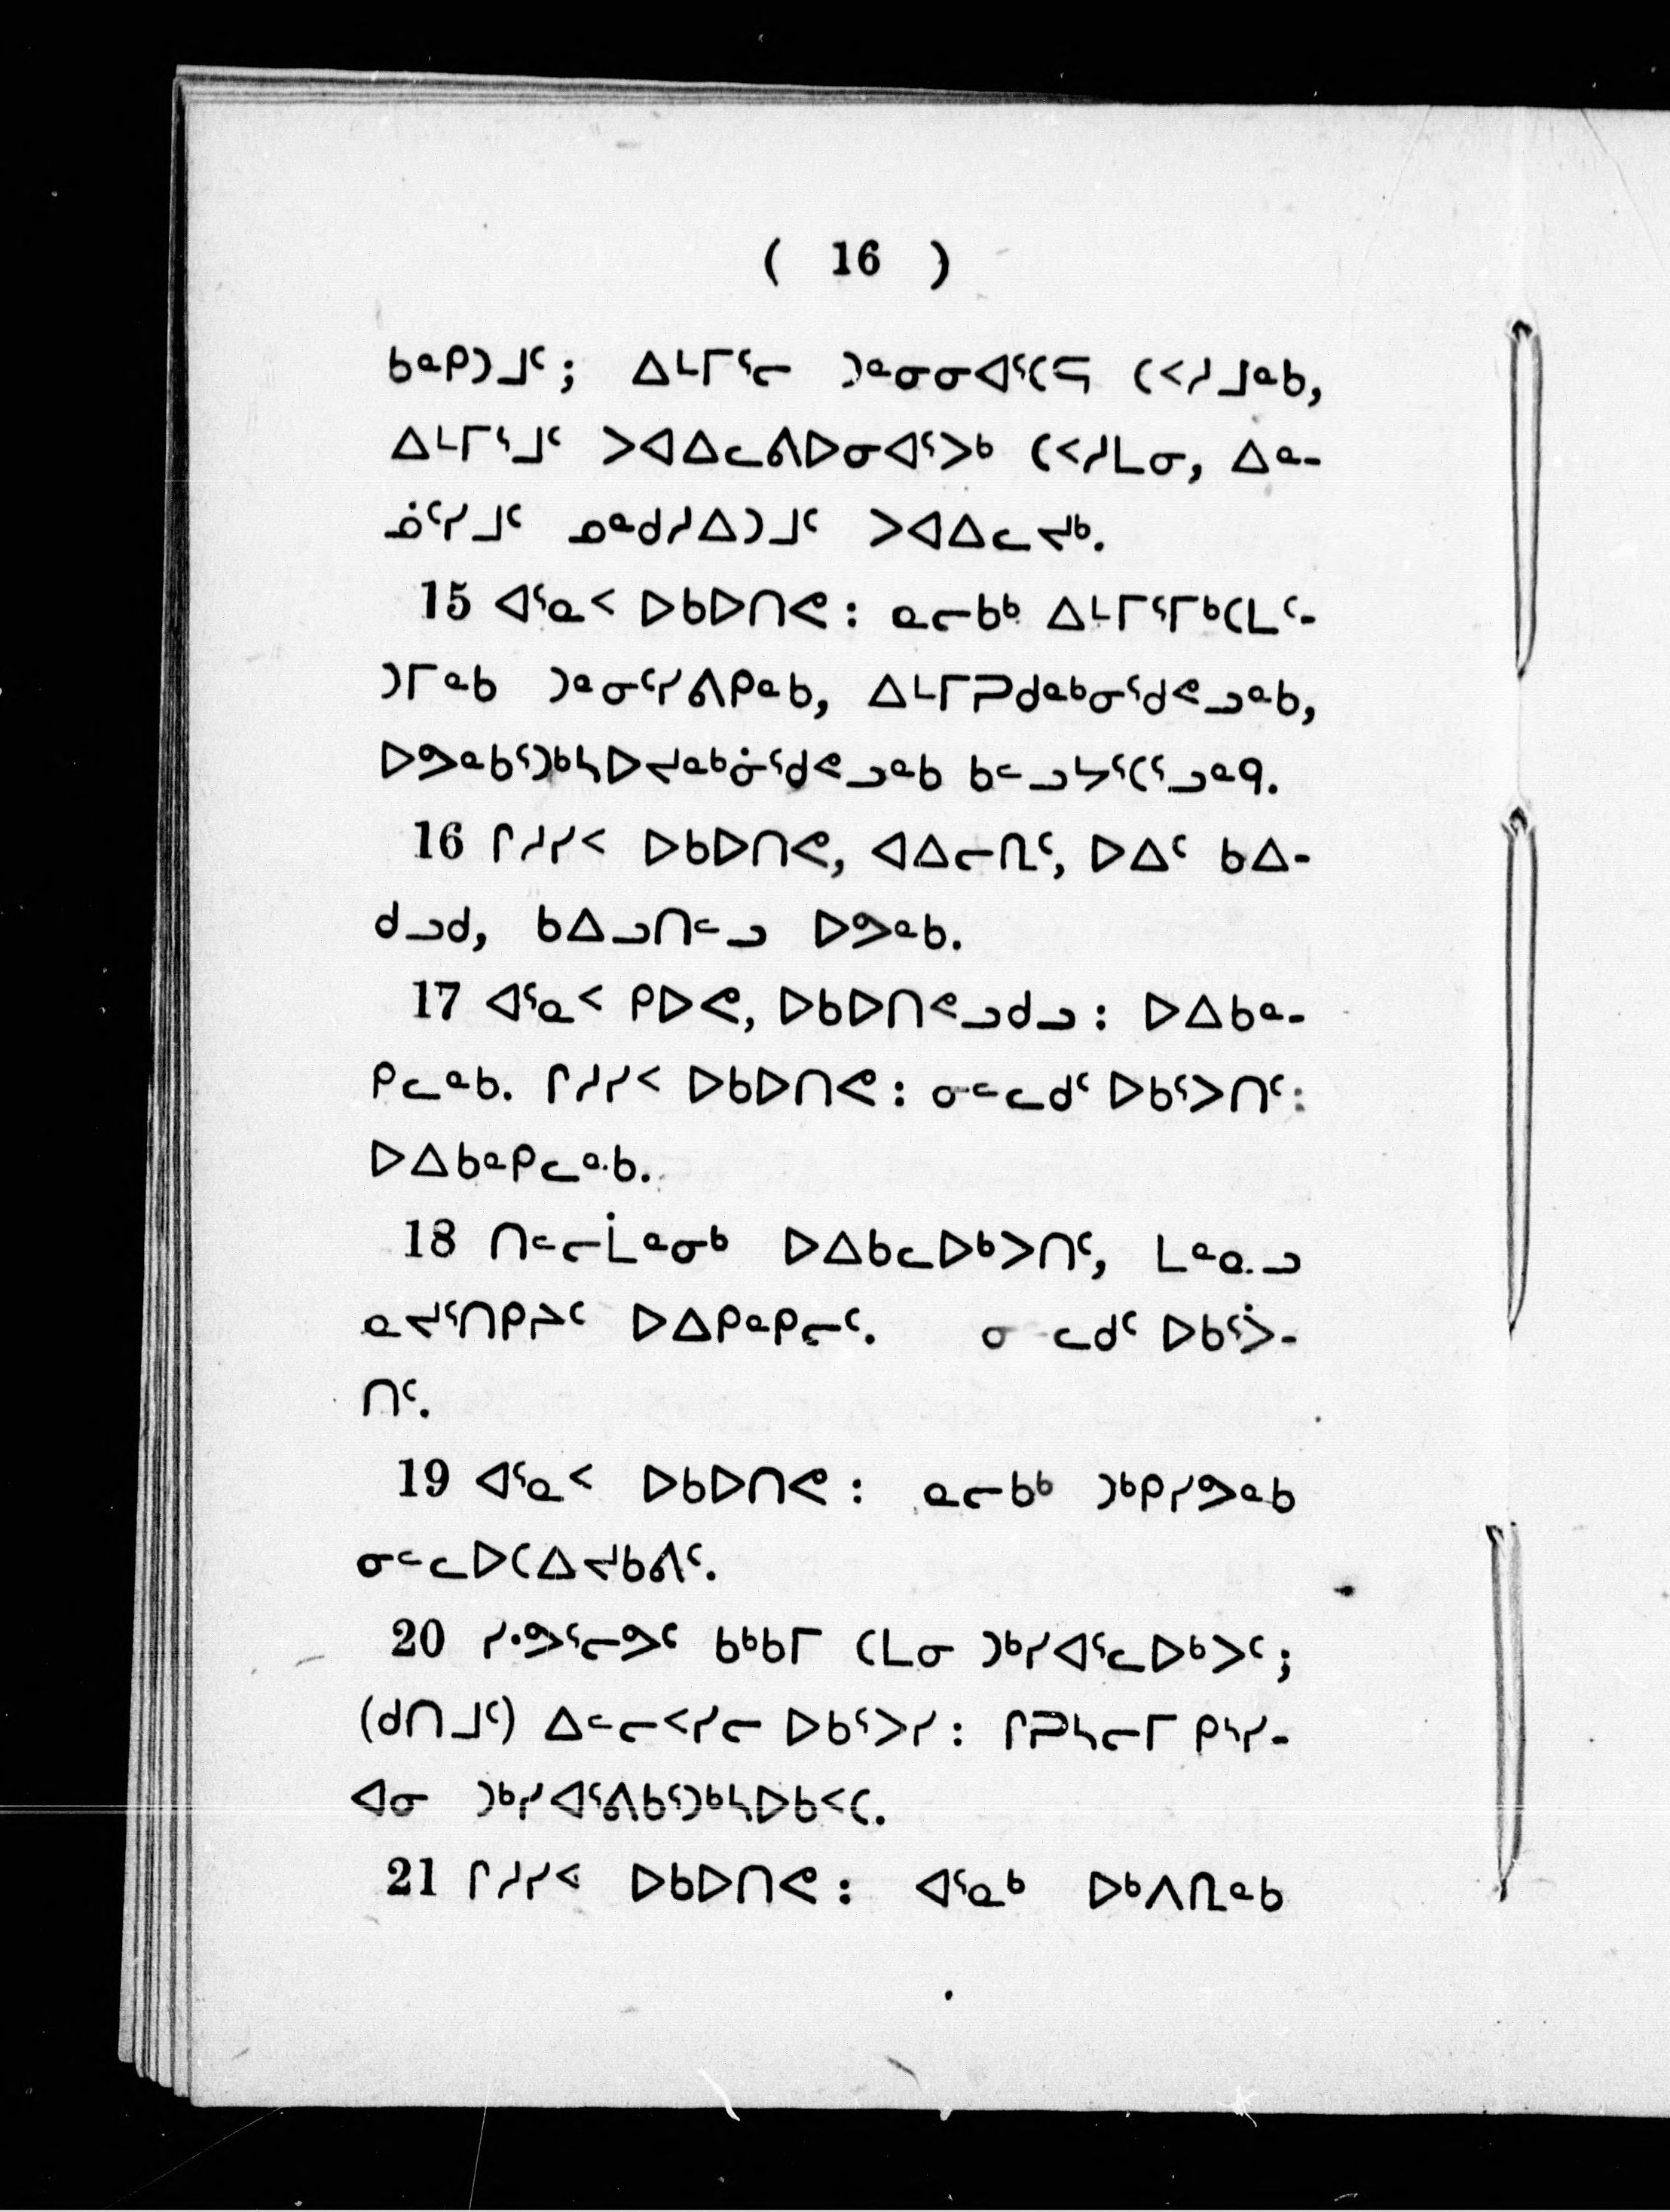 ( 16 )
ᑲᓐᑭᑐᒧᑦ; ᐃᒻᒥᕐᓕ ᑐᓐᓂᓂᐊᕐᑕᕋ ᑕᐸᓱᒧᓐᑲ,
ᐃᒻᒥᕐᒧᑦ ᐳᐊᐃᓚᕕᐅᓂᐊᕐᐳᒃ ᑕᐸᓱᒪᓂ, ᐃᓐ-
ᓅᑦᓯᒧᑦ ᓄᓐᑯᓱᐃᑐᒧᑦ ᐳᐊᐃᓚᔪᒃ.
15 ᐊᕐᓇᑉ ᐅᑲᐅᑎᕙ: ᓇᓕᑲᒃ ᐃᒻᒥᕐᒥᒃᑕᒪᑦ-
ᑐᒥᓐᑲ ᑐᓐᓂᑦᓯᕕᑭᓐᑲ, ᐃᒻᒥᑐᑯᓐᒃᓂᕐᑯᕝᓗᓐᑲ,
ᐅᕗᓐᑲᕐᑐᒃᓴᐅᔪᓐᒃᓃᕐᑯᕝᓗᓐᑲ ᑲᓪᓗᔭᕐᑕᕐᓗᓐᑫ.
16 ᒋᓱᓯᑉ ᐅᑲᐅᑎᕙ, ᐊᐃᓕᒋᑦ, ᐅᐃᑦ ᑲᐃ-
ᑯᓗᑯ, ᑲᐃᓗᑎᓪᓗ ᐅᕗᓐᑲ.
17 ᐊᕐᓇᑉ ᑭᐅᕙ, ᐅᑲᐅᑎᕝᓗᑯᓗ: ᐅᐃᑲᓐ-
ᑭᓚᓐᑲ. ᒋᓱᓯᑉ ᐅᑲᐅᑎᕙ: ᓂᓪᓚᑯᑦ ᐅᑲᕐᐳᑎᑦ:
ᐅᐃᑲᓐᑭᓚᓐᑲ.
18 ᑎᓪᓕᒫᓐᓂᒃ ᐅᐃᑲᓚᐅᒃᐳᑎᑦ, ᒪᓐᓇᓗ
ᓇᔪᕐᑎᑭᔨᑦ ᐅᐃᑭᓐᑭᓕᑦ. ᓂ ᓚᑯᑦ ᐅᑲᕐᐴ-
ᑎᑦ.
19 ᐊᕐᓇᑉ ᐅᑲᐅᑎᕙ: ᓇᓕᑲᒃ ᑐᒃᑭᓯᕗᓐᑲ
ᓂᓪᓚᐅᑕᐃᔪᑲᕕᑦ.
20 ᓯᕗᕐᓕᕗᑦ ᑲᒃᑲᒥ ᑕᒪᓂ ᑐᒃᓯᐊᕐᓚᐅᒃᐳᑦ;
(ᑯᑎᒧᑦ) ᐃᓪᓕᑉᓯᓕ ᐅᑲᕐᐳᓯ: ᒋᑐᓴᓕᒥ ᑭᓴᓯ-
ᐊᓂ ᑐᒃᓯᐊᕐᕕᑲᕐᑐᒃᓴᐅᑲᑉᑕ.
21 ᒋᓱᓯᑉ ᐅᑲᐅᑎᕙ: ᐊᕐᓇᒃ ᐅᒃᐱᒋᓐᑲ